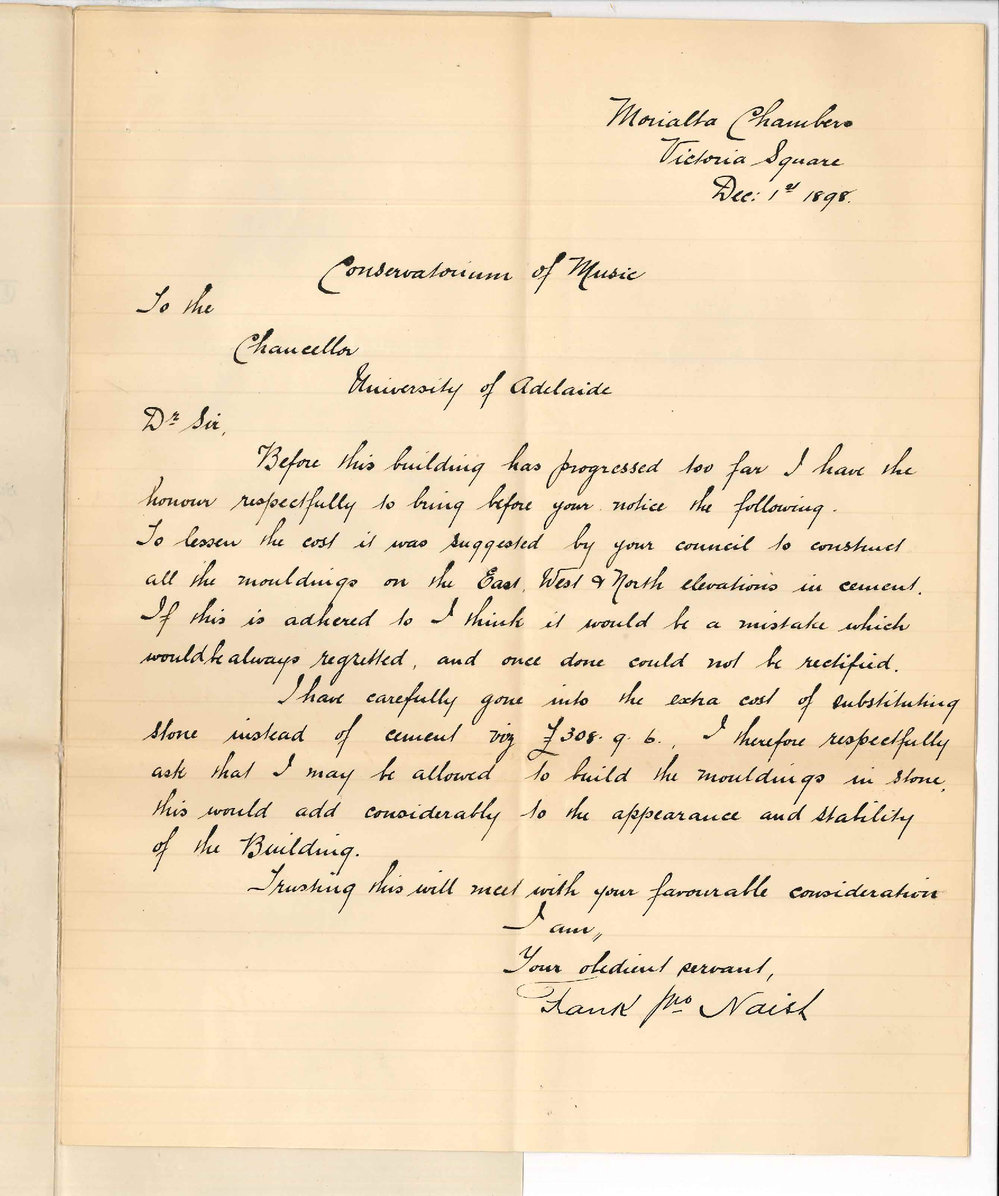 Morialta Chambers
Victoria Square
Dec: 1st 1898.
Conservatorium of Music
To the
Chancellor
University of Adelaide
Dr Sir,
Before this building has progressed too far I have the
honour respectfully to bring before your notice the following.
To lessen the cost it was suggested by your council to construct
all the mouldings on the East, West & North elevations in cement.
If this is adhered to I think it would be a mistake which
would be always regretted, and once done could not be rectified.
I have carefully gone into the extra cost of substituting
stone instead of cement viz £308. 9. 6., I therefore respectfully
ask that I may be allowed to build the mouldings in stone,
this would add considerably to the appearance and stability
of the Building.
Trusting this will meet with your favourable consideration
I am,,
Your obedient servant,
Frank Jno Naish